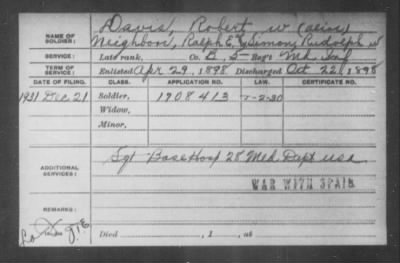 NAME OF SOLDIER: Davis, Robert W (alias)
Neighboor, Ralph E. Simon, Rudolph W
SERVICE: Late rank, Co. B, 5 Reg't Md Inf
TERM OF SERVICE: Enlisted Apr 29, 1898 Discharged Oct 22, 1898
DATE OF FILING. CLASS. APPLICATION NO. CERTIFICATE NO.
1931 Dec 21 Soldier, 1908413
Widow,
Minor,
ADDITIONAL SERVICES: Sgt Base Hosp 28 Med. Dept USA
WAR WITH SPAIN
REMARKS:
Died , 1 , at